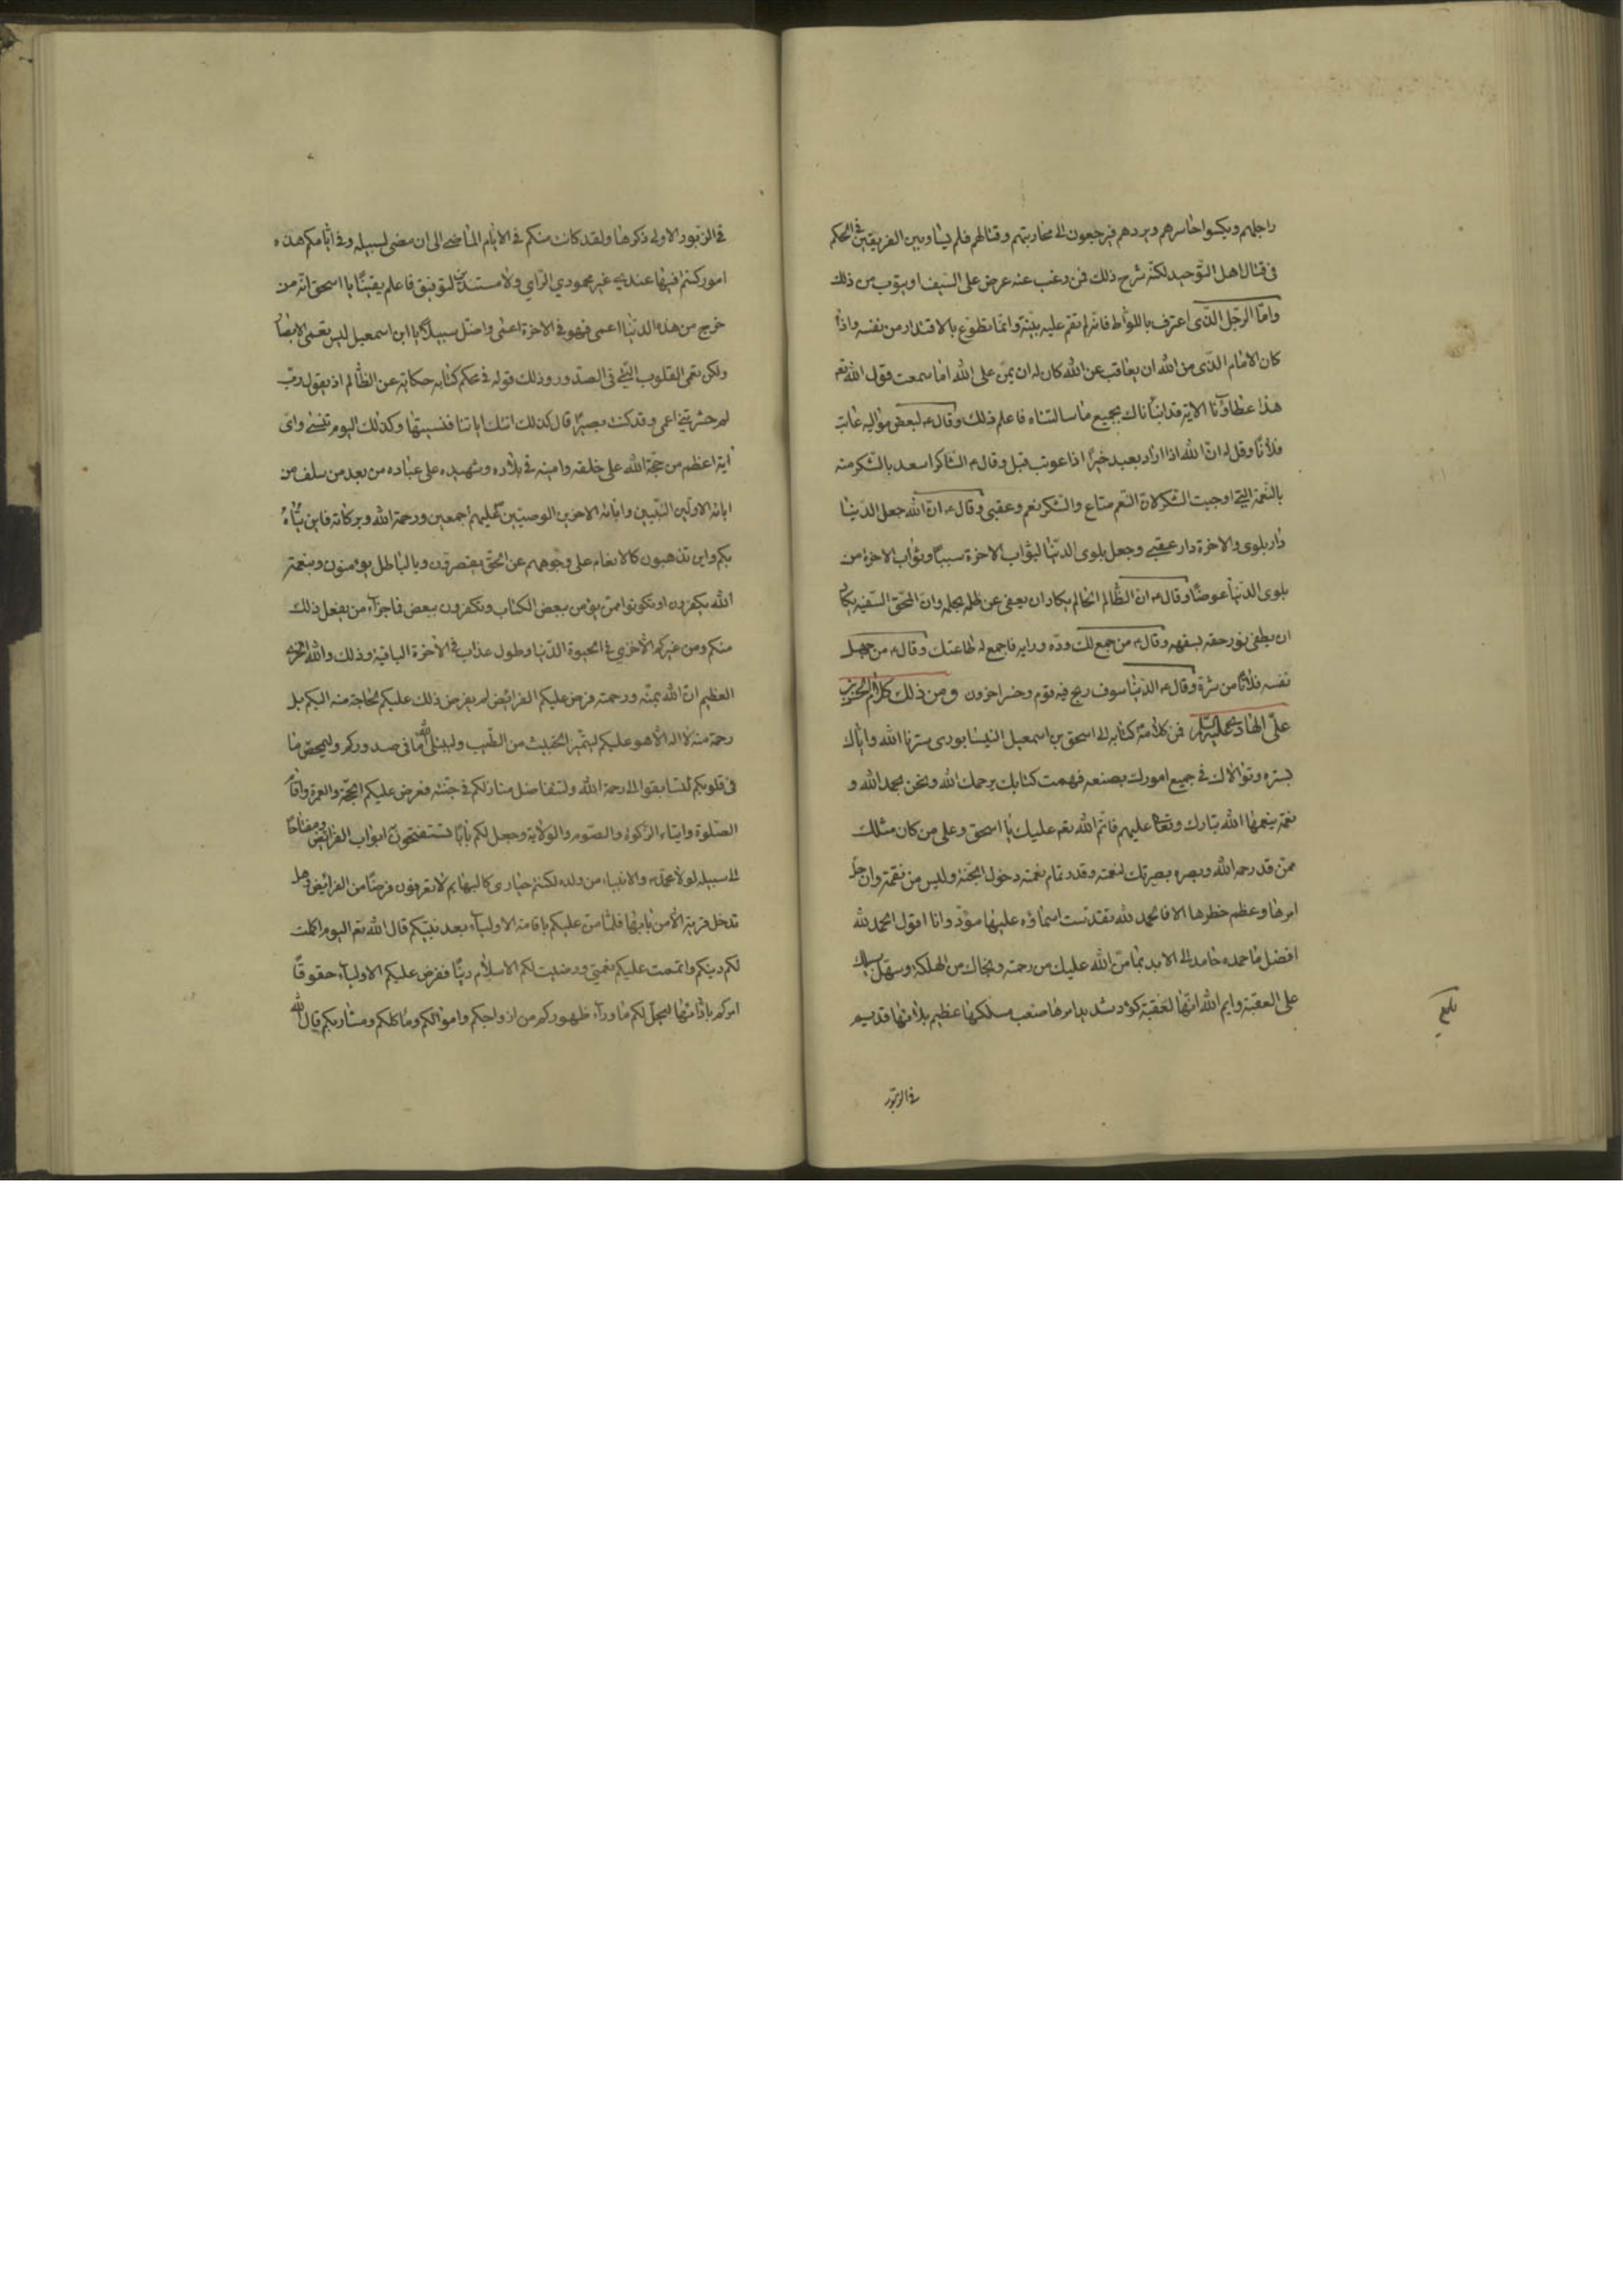 راجلهم ويكسوا حاسرهم ويردهم فيرجعون الى محاربتهم وقتالهم فلم يساو بين الفريقين في الحكم
في قتال اهل التوحيد لكنه شرح ذلك فمن رغب عنه عرض على السيف او يتوب من ذلك
واما الرجل الذي اعترف باللواط فانه لم تقم عليه بينة وانما تطوع بالاقرار من نفسه واذا
كان الامام الذي من الله ان يعاقب عن الله كان له ان يمن على الله اما سمعت قول الله تع
هذا عطاؤنا الاية قد انبأناك بجميع ما سالتناه فاعلم ذلك وقال ع لبعض مواليه عاتب
فلانا وقل له ان الله اذا اراد بعبد خيرا اذا عوتب قبل وقال ع الشاكر اسعد بالشكر منه
بالنعمة التي اوجبت الشكر لان النعم متاع والشكر نعم وعقبى وقال ع ان الله جعل الدنيا
دار بلوى والاخرة دار عقبى وجعل بلوى الدنيا لثواب الاخرة سببا وثواب الاخرة من
بلوى الدنيا عوضا وقال ع ان الظالم الحالم يكاد ان يعفى عن ظلمه بحلمه وان المحق السفيه يكاد
ان يطفى نور حقه بسفهه وقال ع من جمع لك وده ورايه فاجمع له طاعتك وقال ع من جهل
نفسه فلا تامن شره وقال ع الدنيا سوف ربح فيه قوم وخسر اخرون ومن ذلك كلام ابي الحسن
علي الهادي عليه السلام فمن كلامه كتابه الى اسحق بن اسمعيل النيسابوري سترنا الله واياك
بستره وتولاك في جميع امورك بصنعه فهمت كتابك يرحمك الله ونحن بحمد الله و
نعمة ينعمها الله تبارك وتعالى عليهم فاتم الله نعم عليك يا اسحق وعلى من كان مثلك
ممن قد رحمه الله وبصره بصيرتك لنعمته وقدر تمام نعمته دخول الجنة وليس من نعمة وان جل
امرها وعظم خطرها الا فالحمد لله تقدست اسماؤه عليها مؤد وانا اقول الحمد لله
افضل ما حمده حامد الى الابد بما من الله عليك من رحمته ونجاك من الهلكة وسهل سبيلك
على العقبة وايم الله انها لعقبة كؤد شديد امرها صعب مسلكها عظيم بلاؤها قديم
في الزبور
في الزبور الاولى ذكرها ولقد كانت منكم في الايام الماضي الى ان مضى لسبيله وفي ايامكم هذه
امور كنتم فيها عندي غير محمودي الراي ولا مسددي التوفيق فاعلم يقينا يا اسحق انه من
خرج من هذه الدنيا اعمى فهو في الاخرة اعمى واضل سبيلا يا ابن اسمعيل ليس تعمى الابصار
ولكن تعمى القلوب التي في الصدور وذلك قوله في محكم كتابه حكاية عن الظالم اذ يقول رب
لم حشرتني اعمى وقد كنت بصيرا قال كذلك اتتك اياتنا فنسيتها وكذلك اليوم تنسى واي
اية اعظم من حجة الله على خلقه وامينه في بلاده وشهيده على عباده من بعد من سلف من
ابائه الاولين النبيين وابائه الاخرين الوصيين عليهم اجمعين ورحمة الله وبركاته فاين يتاه
بكم واين تذهبون كالانعام على وجوهكم عن الحق تصدفون وبالباطل يؤمنون وبنعمة
الله يكفرون او تكونوا ممن يؤمن ببعض الكتاب وتكفرون ببعض فما جزاء من يفعل ذلك
منكم ومن غيركم الا خزي في الحيوة الدنيا وطول عذاب في الاخرة الباقية وذلك والله الخزي
العظيم ان الله بمنه ورحمته فرض عليكم الفرائض لم يفرض ذلك عليكم لحاجة منه اليكم بل
رحمة منه لا اله الا هو عليكم ليتميز الخبيث من الطيب وليبتلى الله ما في صدوركم وليمحص ما
في قلوبكم لتسابقوا الى رحمة الله ولتتفاضل منازلكم في جنته ففرض عليكم الحج والعمرة واقام
الصلوة وايتاء الزكوة والصوم والولاية وجعل لكم بابا تستفتحون ابواب الفرائض ومفتاحا
الى سبيله لولا محمد ع والانبياء من ولده لكنتم حيارى كالبهايم لا تعرفون فرضا من الفرائض وهل
تدخل قرية الا من بابها فلما من عليكم باقامة الاولياء بعد نبيكم قال الله تع اليوم اكملت
لكم دينكم واتممت عليكم نعمتي ورضيت لكم الاسلام دينا ففرض عليكم الاولياء حقوقا
امركم بادائها ليحل لكم ما وراء ظهوركم من ازواجكم واموالكم ومأكلكم ومشاربكم قال الله